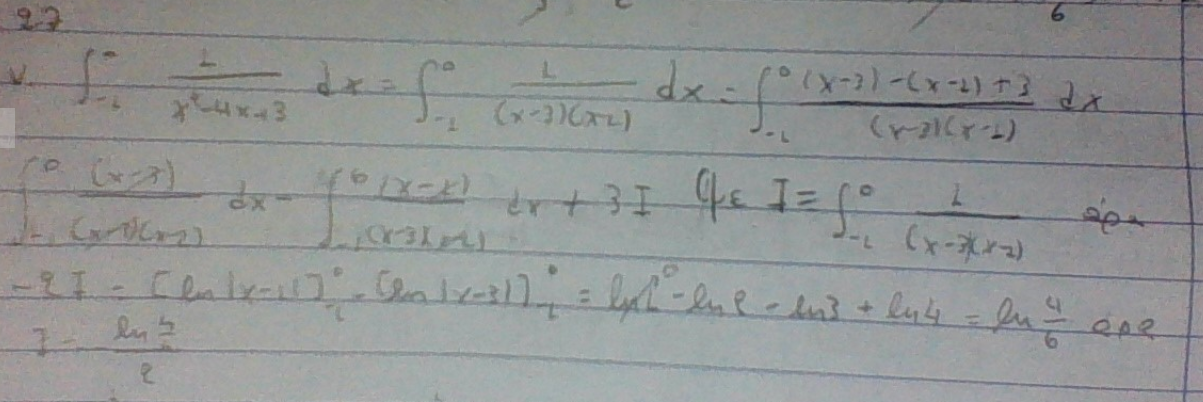 27
v. ∫_{-1}^{0} 1/(x²-4x+3) dx = ∫_{-1}^{0} 1/((x-3)(x-1)) dx = ∫_{-1}^{0} ((x-3)-(x-1)+3)/((x-3)(x-1)) dx
∫_{-1}^{0} (x-3)/((x-3)(x-1)) dx - ∫_{-1}^{0} (x-1)/((x-3)(x-1)) dx + 3I με I = ∫_{-1}^{0} 1/((x-3)(x-1)) άρα
-2I = [ln|x-1|]_{-1}^{0} - [ln|x-3|]_{-1}^{0} = ln1 - ln2 - ln3 + ln4 = ln 4/6 άρα
6